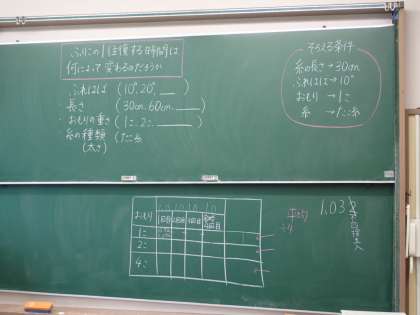 ふりこの1往復する時間は
何によって変わるのだろうか
ふれはば (10°, 20°, __)
長さ (30cm, 60cm, ____)
・おもりの重さ (1こ, 2こ, ____)
糸の種類 (たこ糸
(太さ)
そろえる条件
糸の長さ→30cm
ふれはば→10°
おもり→1こ
糸→たこ糸
おもり 1回目 2回目 3回目
1こ
2こ
4こ
平均
1.03